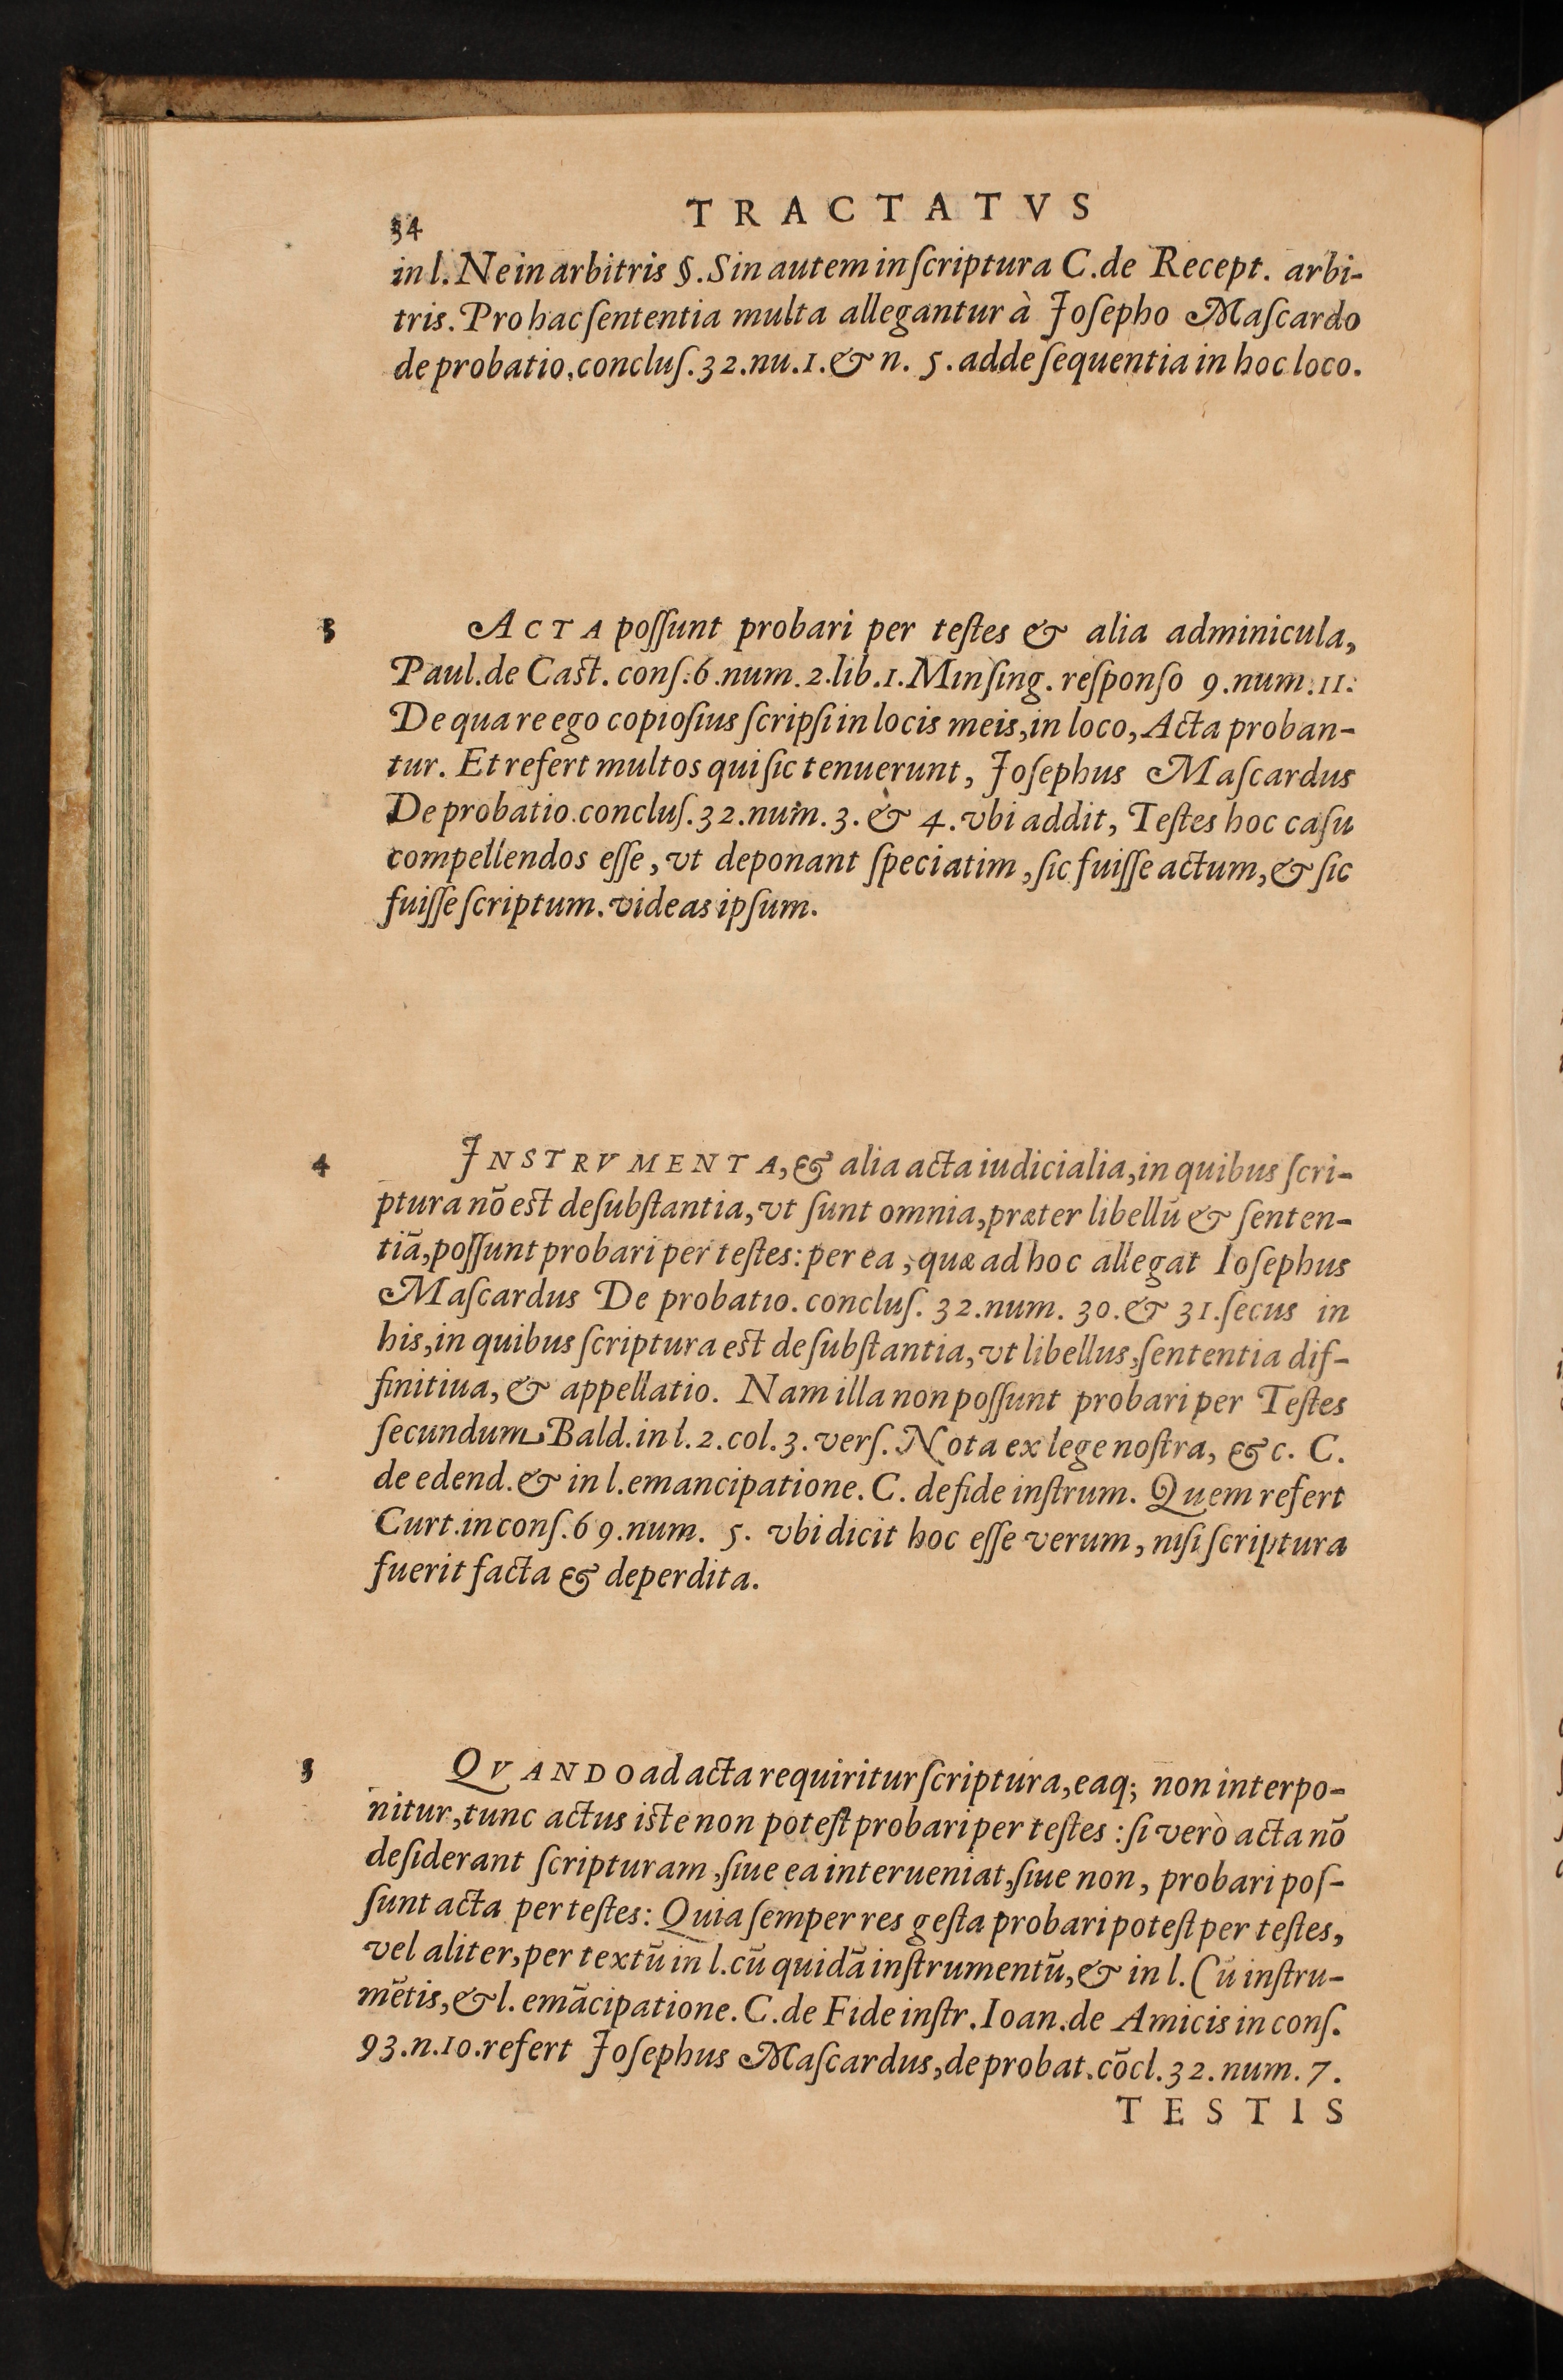 34 TRACTATVS
in l. Ne in arbitris §. Sin autem in ſcriptura C. de Recept. arbi-
tris. Pro hac ſententia multa allegantur à Joſepho Maſcardo
de probatio. concluſ. 32. nu. 1. & n. 5. adde ſequentia in hoc loco.
3 ACTA poſſunt probari per teſtes & alia adminicula,
Paul. de Caſt. conſ. 6. num. 2. lib. 1. Minſing. reſponſo 9. num. 11.
De qua re ego copioſius ſcripſi in locis meis, in loco, Acta proban-
tur. Et refert multos qui ſic tenuerunt, Joſephus Maſcardus
De probatio. concluſ. 32. num. 3. & 4. vbi addit, Teſtes hoc caſu
compellendos eſſe, vt deponant ſpeciatim, ſic fuiſſe actum, & ſic
fuiſſe ſcriptum. videas ipſum.
4 JNSTRVMENTA, & alia acta iudicialia, in quibus ſcri-
ptura nõ eſt de ſubſtantia, vt ſunt omnia, præter libellũ & ſenten-
tiã, poſſunt probari per teſtes: per ea, quæ ad hoc allegat Ioſephus
Maſcardus De probatio. concluſ. 32. num. 30. & 31. ſecus in
his, in quibus ſcriptura eſt de ſubſtantia, vt libellus, ſententia dif-
finitiua, & appellatio. Nam illa non poſſunt probari per Teſtes
ſecundum Bald. in l. 2. col. 3. verſ. Nota ex lege noſtra, &c. C.
de edend. & in l. emancipatione. C. de fide inſtrum. Quem refert
Curt. in conſ. 69. num. 5. vbi dicit hoc eſſe verum, niſi ſcriptura
fuerit facta & deperdita.
QVANDO ad acta requiritur ſcriptura, eaq; non interpo-
nitur, tunc actus iſte non poteſt probari per teſtes: ſi verò acta nõ
deſiderant ſcripturam, ſiue ea interueniat, ſiue non, probari poſ-
ſunt acta per teſtes: Quia ſemper res geſta probari poteſt per teſtes,
vel aliter, per textũ in l. cũ quidã inſtrumentũ, & in l. Cũ inſtru-
mẽtis, & l. emãcipatione. C. de Fide inſtr. Ioan. de Amicis in conſ.
93. n. 10. refert Joſephus Maſcardus, de probat. cõcl. 32. num. 7.
TESTIS